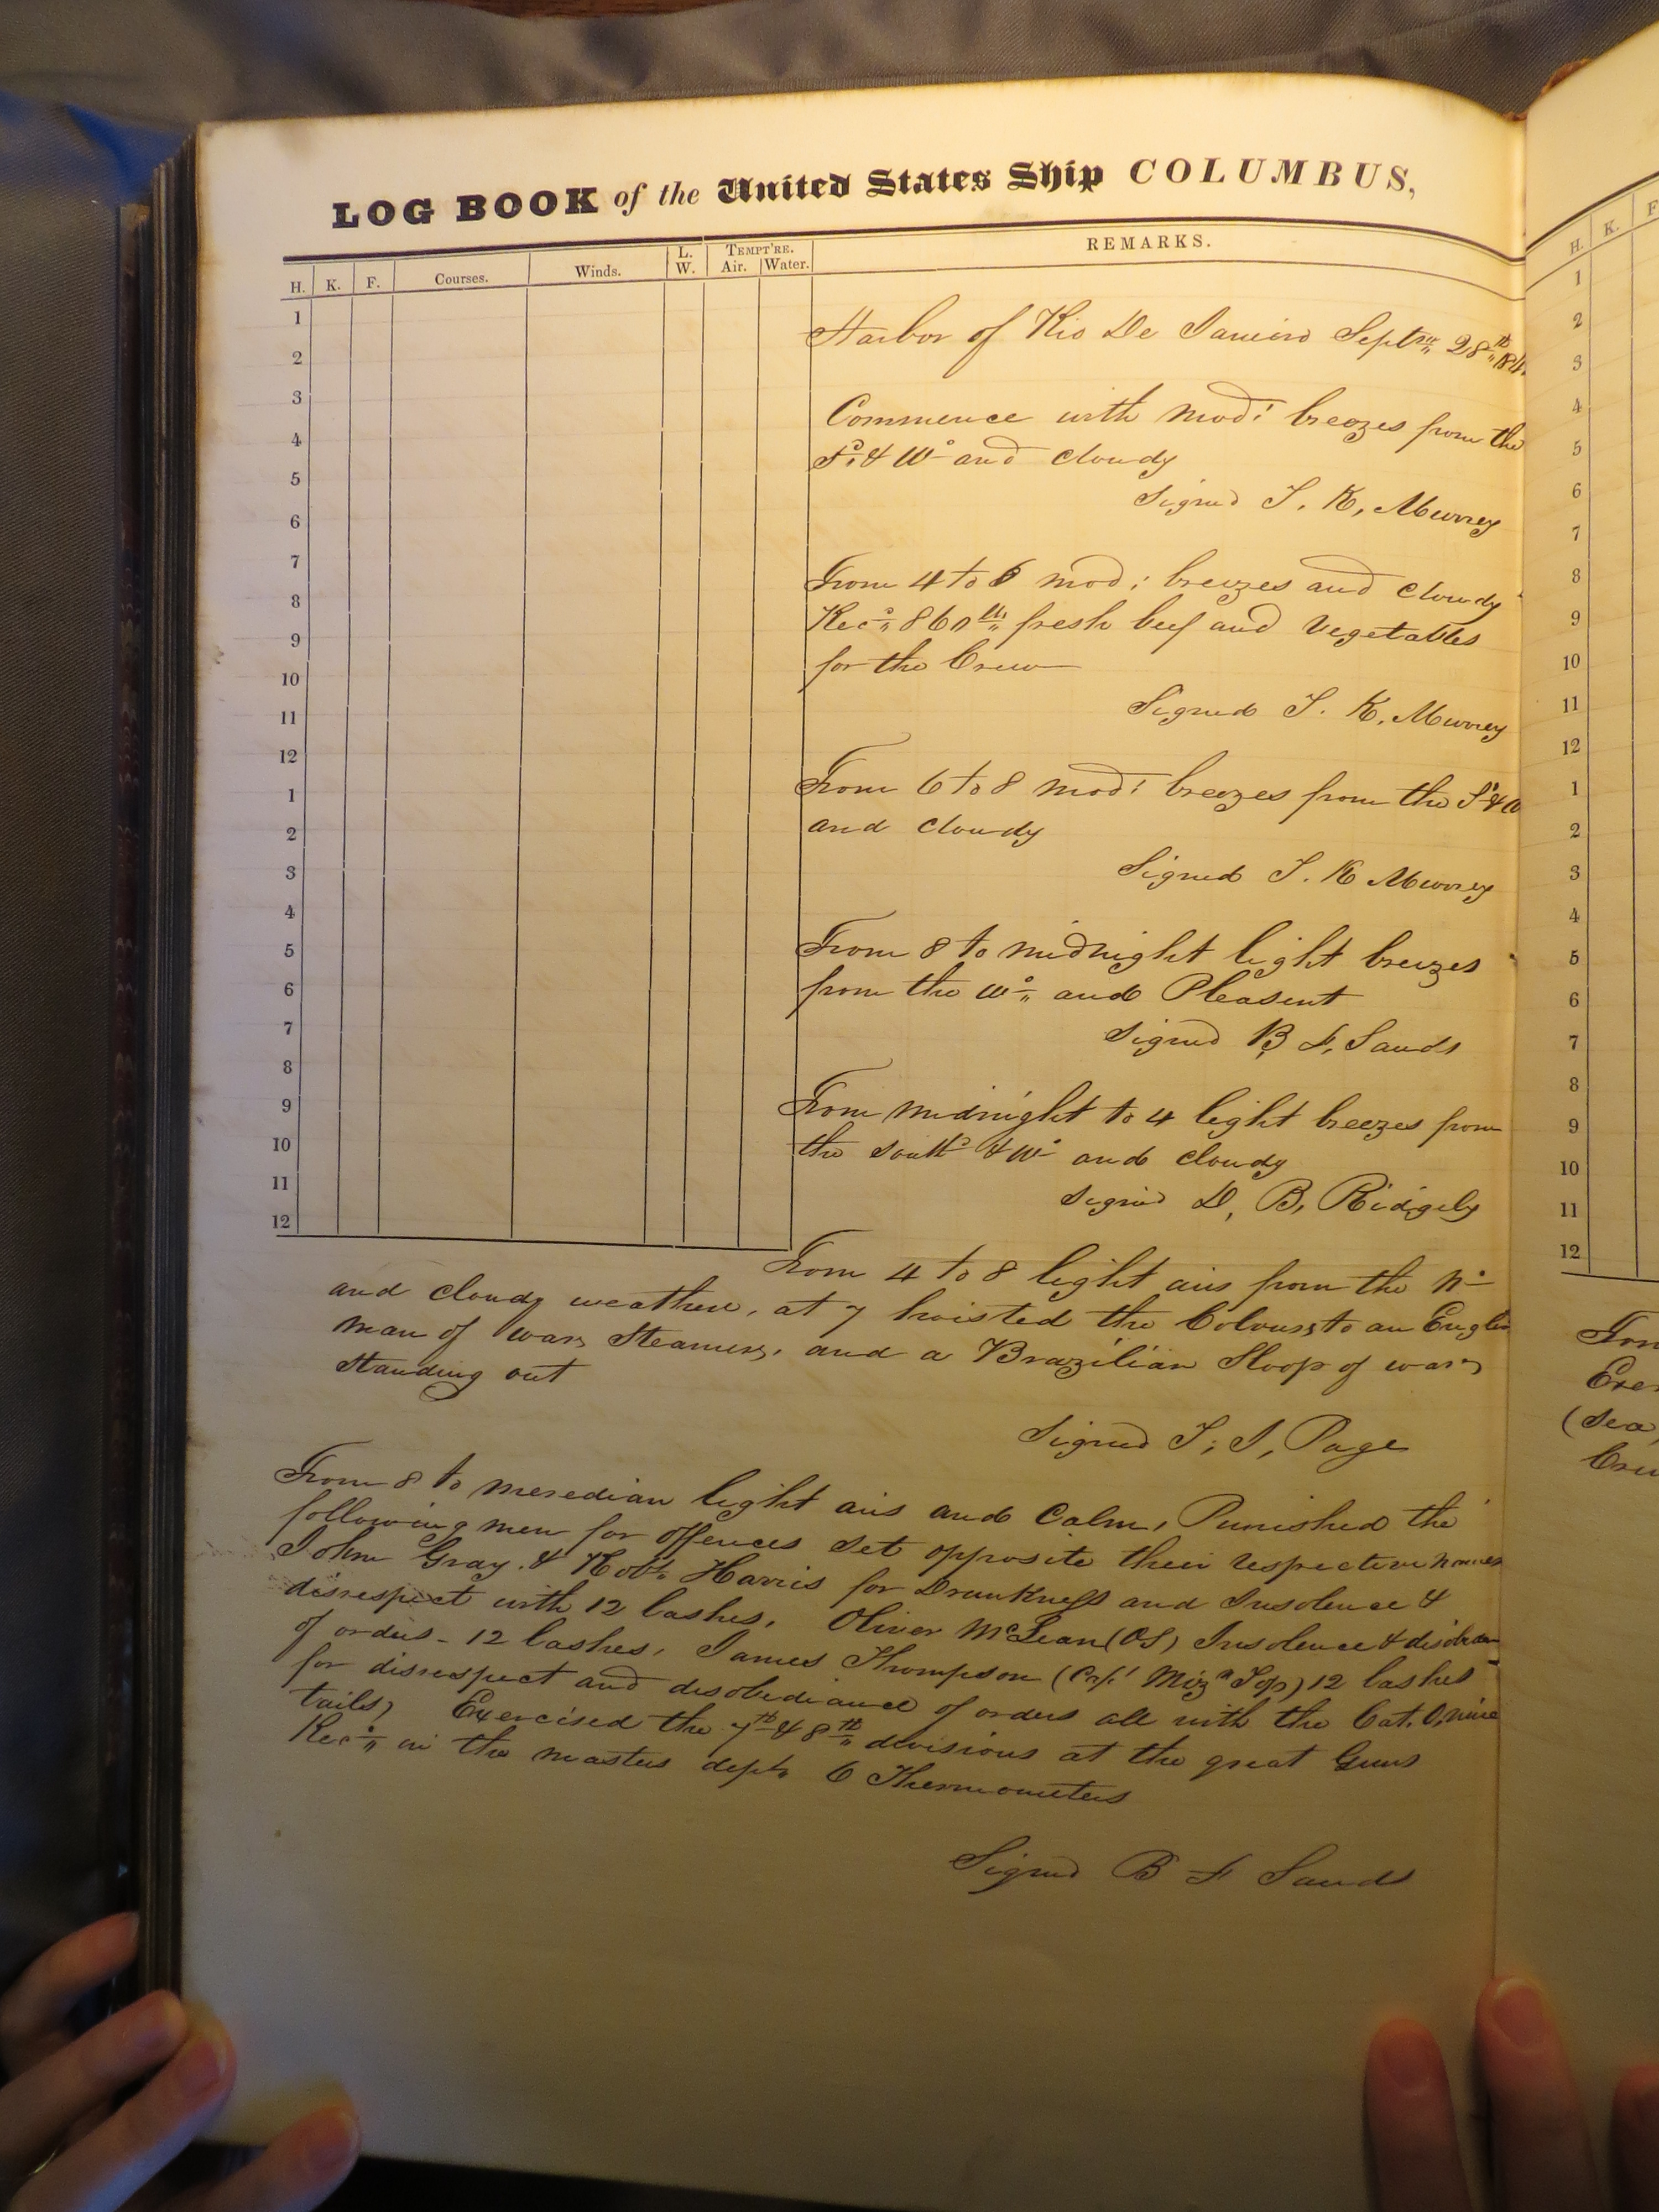 LOG BOOK of the United States Ship COLUMBUS,
H. K. F. Courses. Winds. L. W. TEMPT'RE. Air. Water. REMARKS.
Harbor of Rio De Janeiro Septm 28th 184
Commence with mod: breezes from the
Sd & Wd and cloudy
Signed J. K. Murrey
From 4 to 6 mod: breezes and cloudy
Recd 860 lbs fresh beef and Vegetables
for the Crew
Signed J. K. Murrey
From 6 to 8 mod: breezes from the Sd & W
and cloudy
Signed J. K Murrey
From 8 to midnight light breezes
from the Wd and Pleasent
Signed B F. Sands
From midnight to 4 light breezes from
the southd & Wd and cloudy
Signed D, B, Ridgely
From 4 to 8 light airs from the Nd
and cloudy weather, at 7 hoisted the Colours to an Englis
man of war Steamer, and a Brazilian Sloop of war
standing out
Signed T, J, Page
From 8 to meredian light airs and Calm, Punished the
following men for offences set opposite their respective names
John Gray & Robt Harris for Drunkness and Insolence &
disrespect with 12 lashes, Oliver McLean (OS) Insolence & disobedien
of orders - 12 lashes, James Thompson (Cpt Mizn Top) 12 lashes
for disrespect and disobediance of orders all with the Cat, O, nine
tails) Exercised the 7th & 8th divisions at the great Guns
Recd in the masters dept 6 Thermometers
Signed B F Sands
1
2
3
4
5
6
7
8
9
10
11
12
1
2
3
4
5
6
7
8
9
10
11
12
H. K. F
1
2
3
4
5
6
7
8
9
10
11
12
1
2
3
4
5
6
7
8
9
10
11
12
Exer
(Sea,
Crew